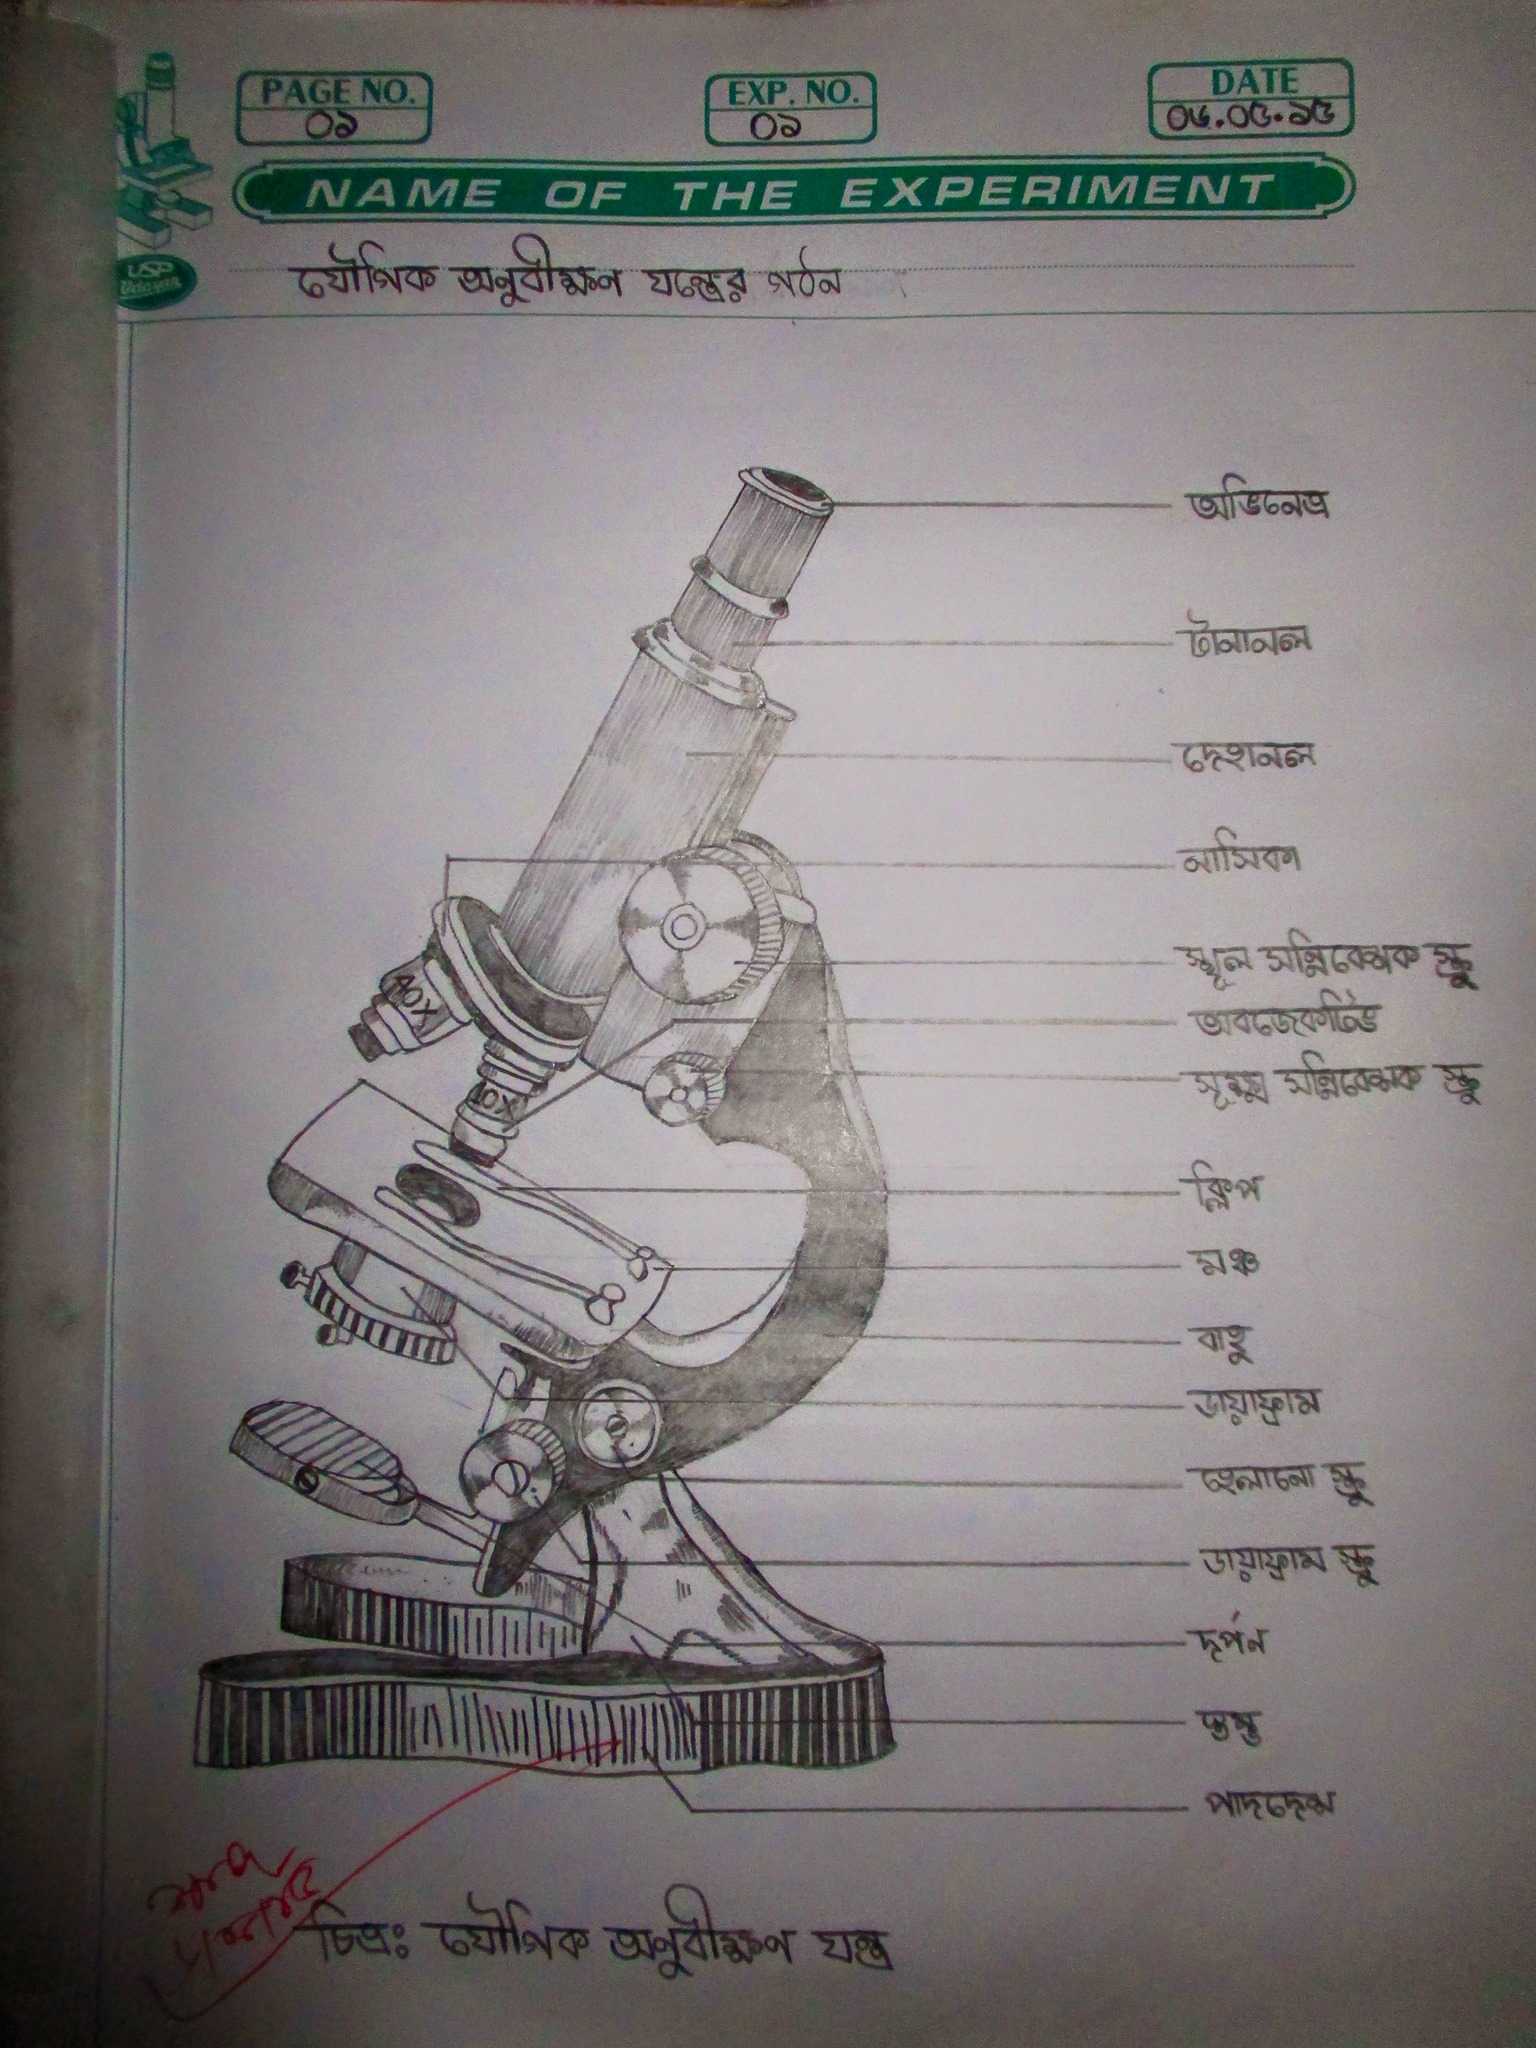 PAGE NO.
০১
EXP. NO.
০১
DATE
০৬.০৫.১৫
NAME OF THE EXPERIMENT
USP
Udayan
যৌগিক অনুবীক্ষণ যন্ত্রের গঠন
অভিনেত্র
টানানল
দেহানল
নাসিকা
স্থূল সন্নিবেশক স্ক্রু
অবজেকটিভ
সূক্ষ্ম সন্নিবেশক স্ক্রু
ক্লিপ
মঞ্চ
বাহু
ডায়াফ্রাম
হেলানো স্ক্রু
ডায়াফ্রাম স্ক্রু
দর্পন
স্তম্ভ
পাদদেশ
40X
10X
চিত্রঃ যৌগিক অনুবীক্ষণ যন্ত্র